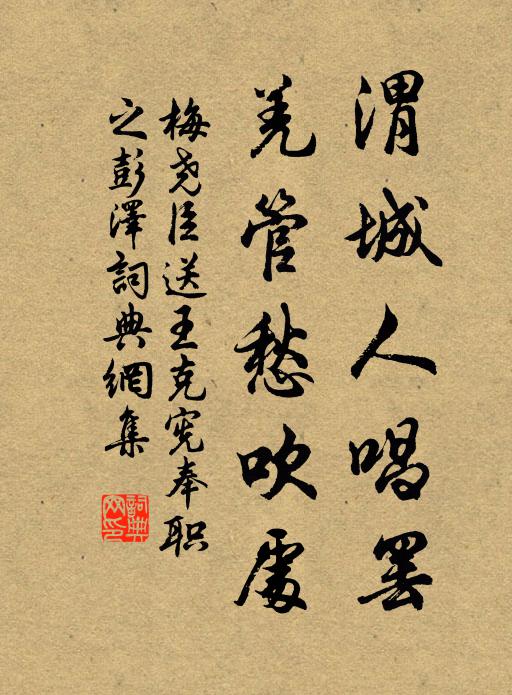 渭城人唱罢
羌管愁吹處
梅尧臣送王克宪奉职
之彭澤詞典網集
詞典网印